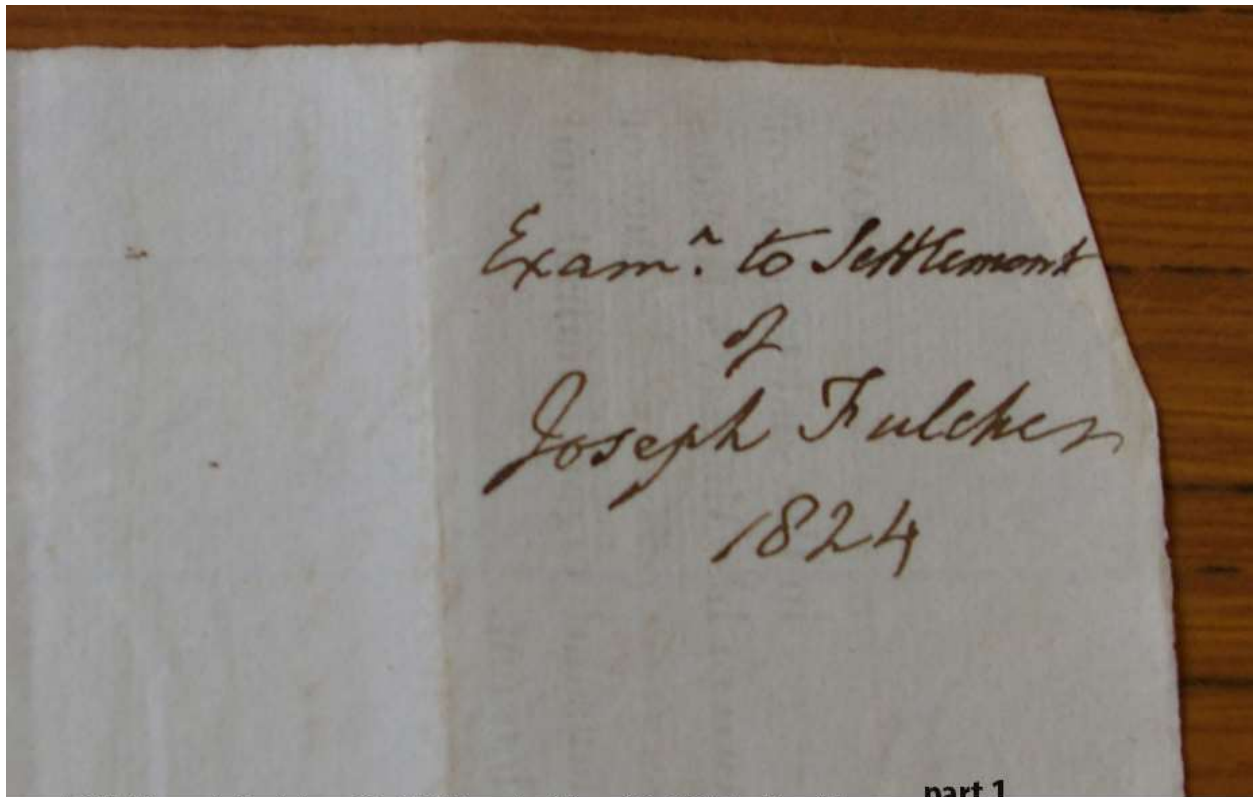 Examⁿ. to Settlement
of
Joseph Fulcher
1824
part 1